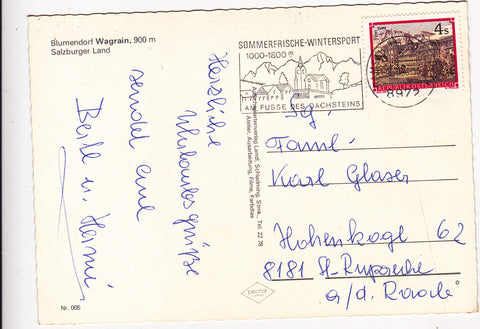 Blumendorf Wagrain, 900 m
Salzburger Land
SOMMERFRISCHE-WINTERSPORT
1000-1800 m
AM FUSSE DES DACHSTEINS
4 S
REPUBLIK ÖSTERREICH
8972
Herzliche
Urlaubsgrüße
sendet eine
Berti u. Heini
Atelier, Ausarbeitung, Filme, Farbdias
Landl, Schladming, Stmk., Tel. 22 78
Fg.
Faml.
Karl Glaser
Hohenkogl 62
8181 St. Ruprecht
a/d. Raab
Nr. 005